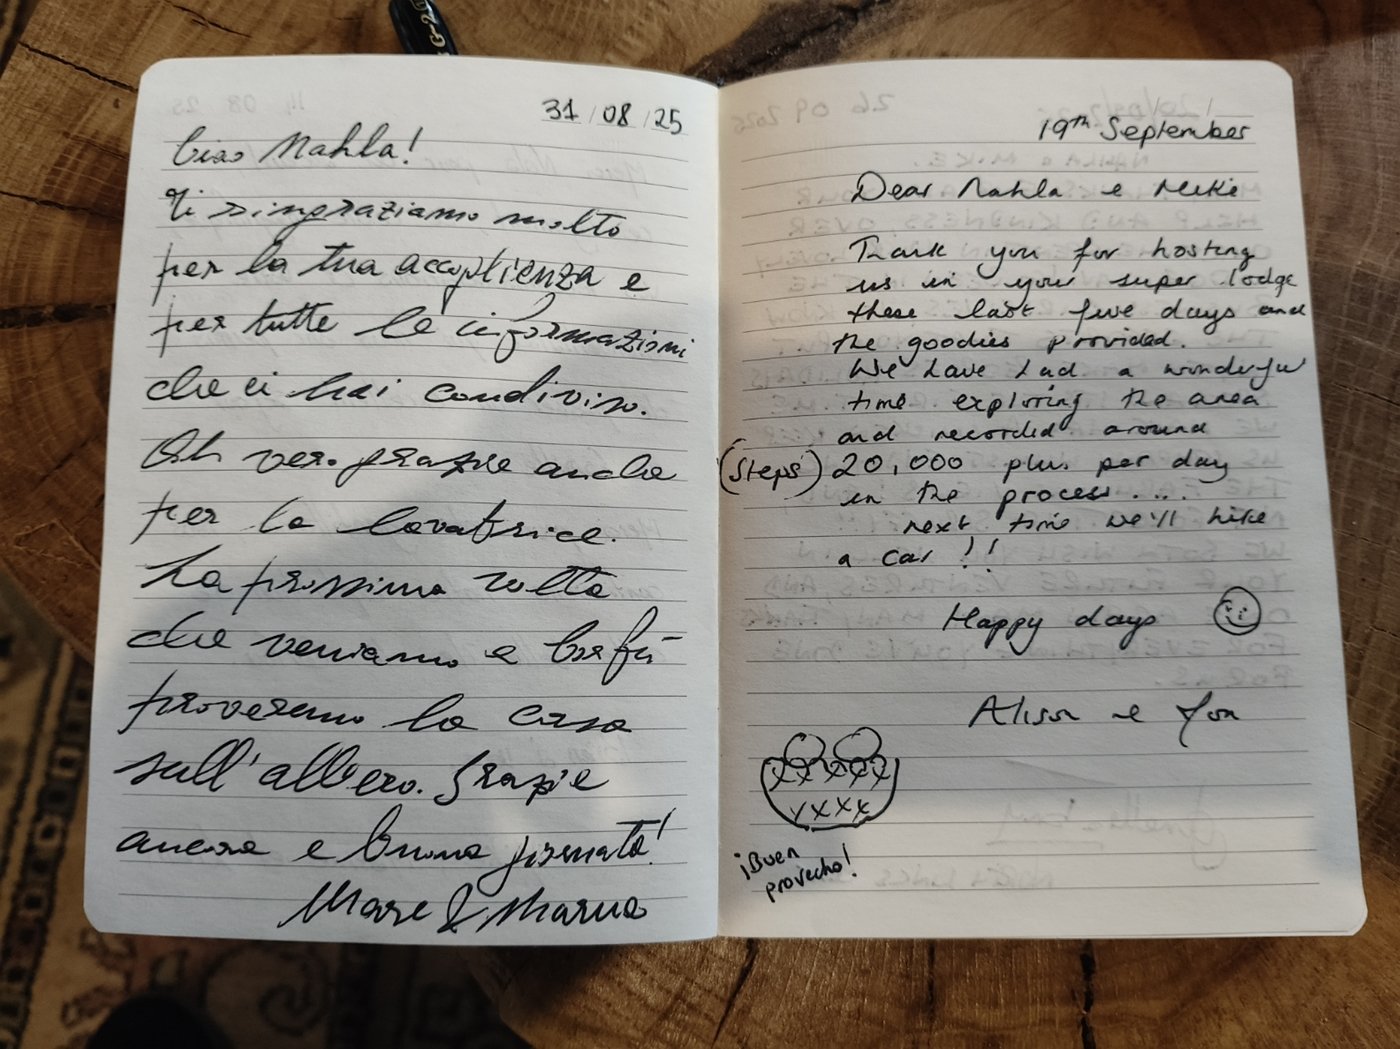 31/08/25
Ciao Nahla!
Ti ringraziamo molto
per la tua accoglienza e
per tutte le informazioni
che ci hai condiviso.
Oh vero grazie anche
per la lavatrice.
La prossima volta
che veniamo a Corfù
proveremo la casa
sull'albero. Grazie
ancora e buona giornata!
Marc & Marua
19th September
Dear Nahla e Mike
Thank you for hosting
us in your super lodge
these last five days and
the goodies provided.
We have had a wonderful
time exploring the area
and recorded around
(steps) 20,000 plus per day
in the process....
next time we'll hike
a car !!
Happy days
Alison e Jon
xx xxxx
xxxx
¡Buen
provecho!
G-20